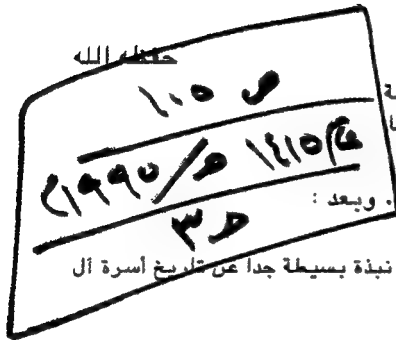 حفظه الله
ص ١٠٥
عام ١٤١٥ هـ / ١٩٩٥ م
. وبعد :
ط ٣
نبذة بسيطة جداً عن تاريخ أسرة آل